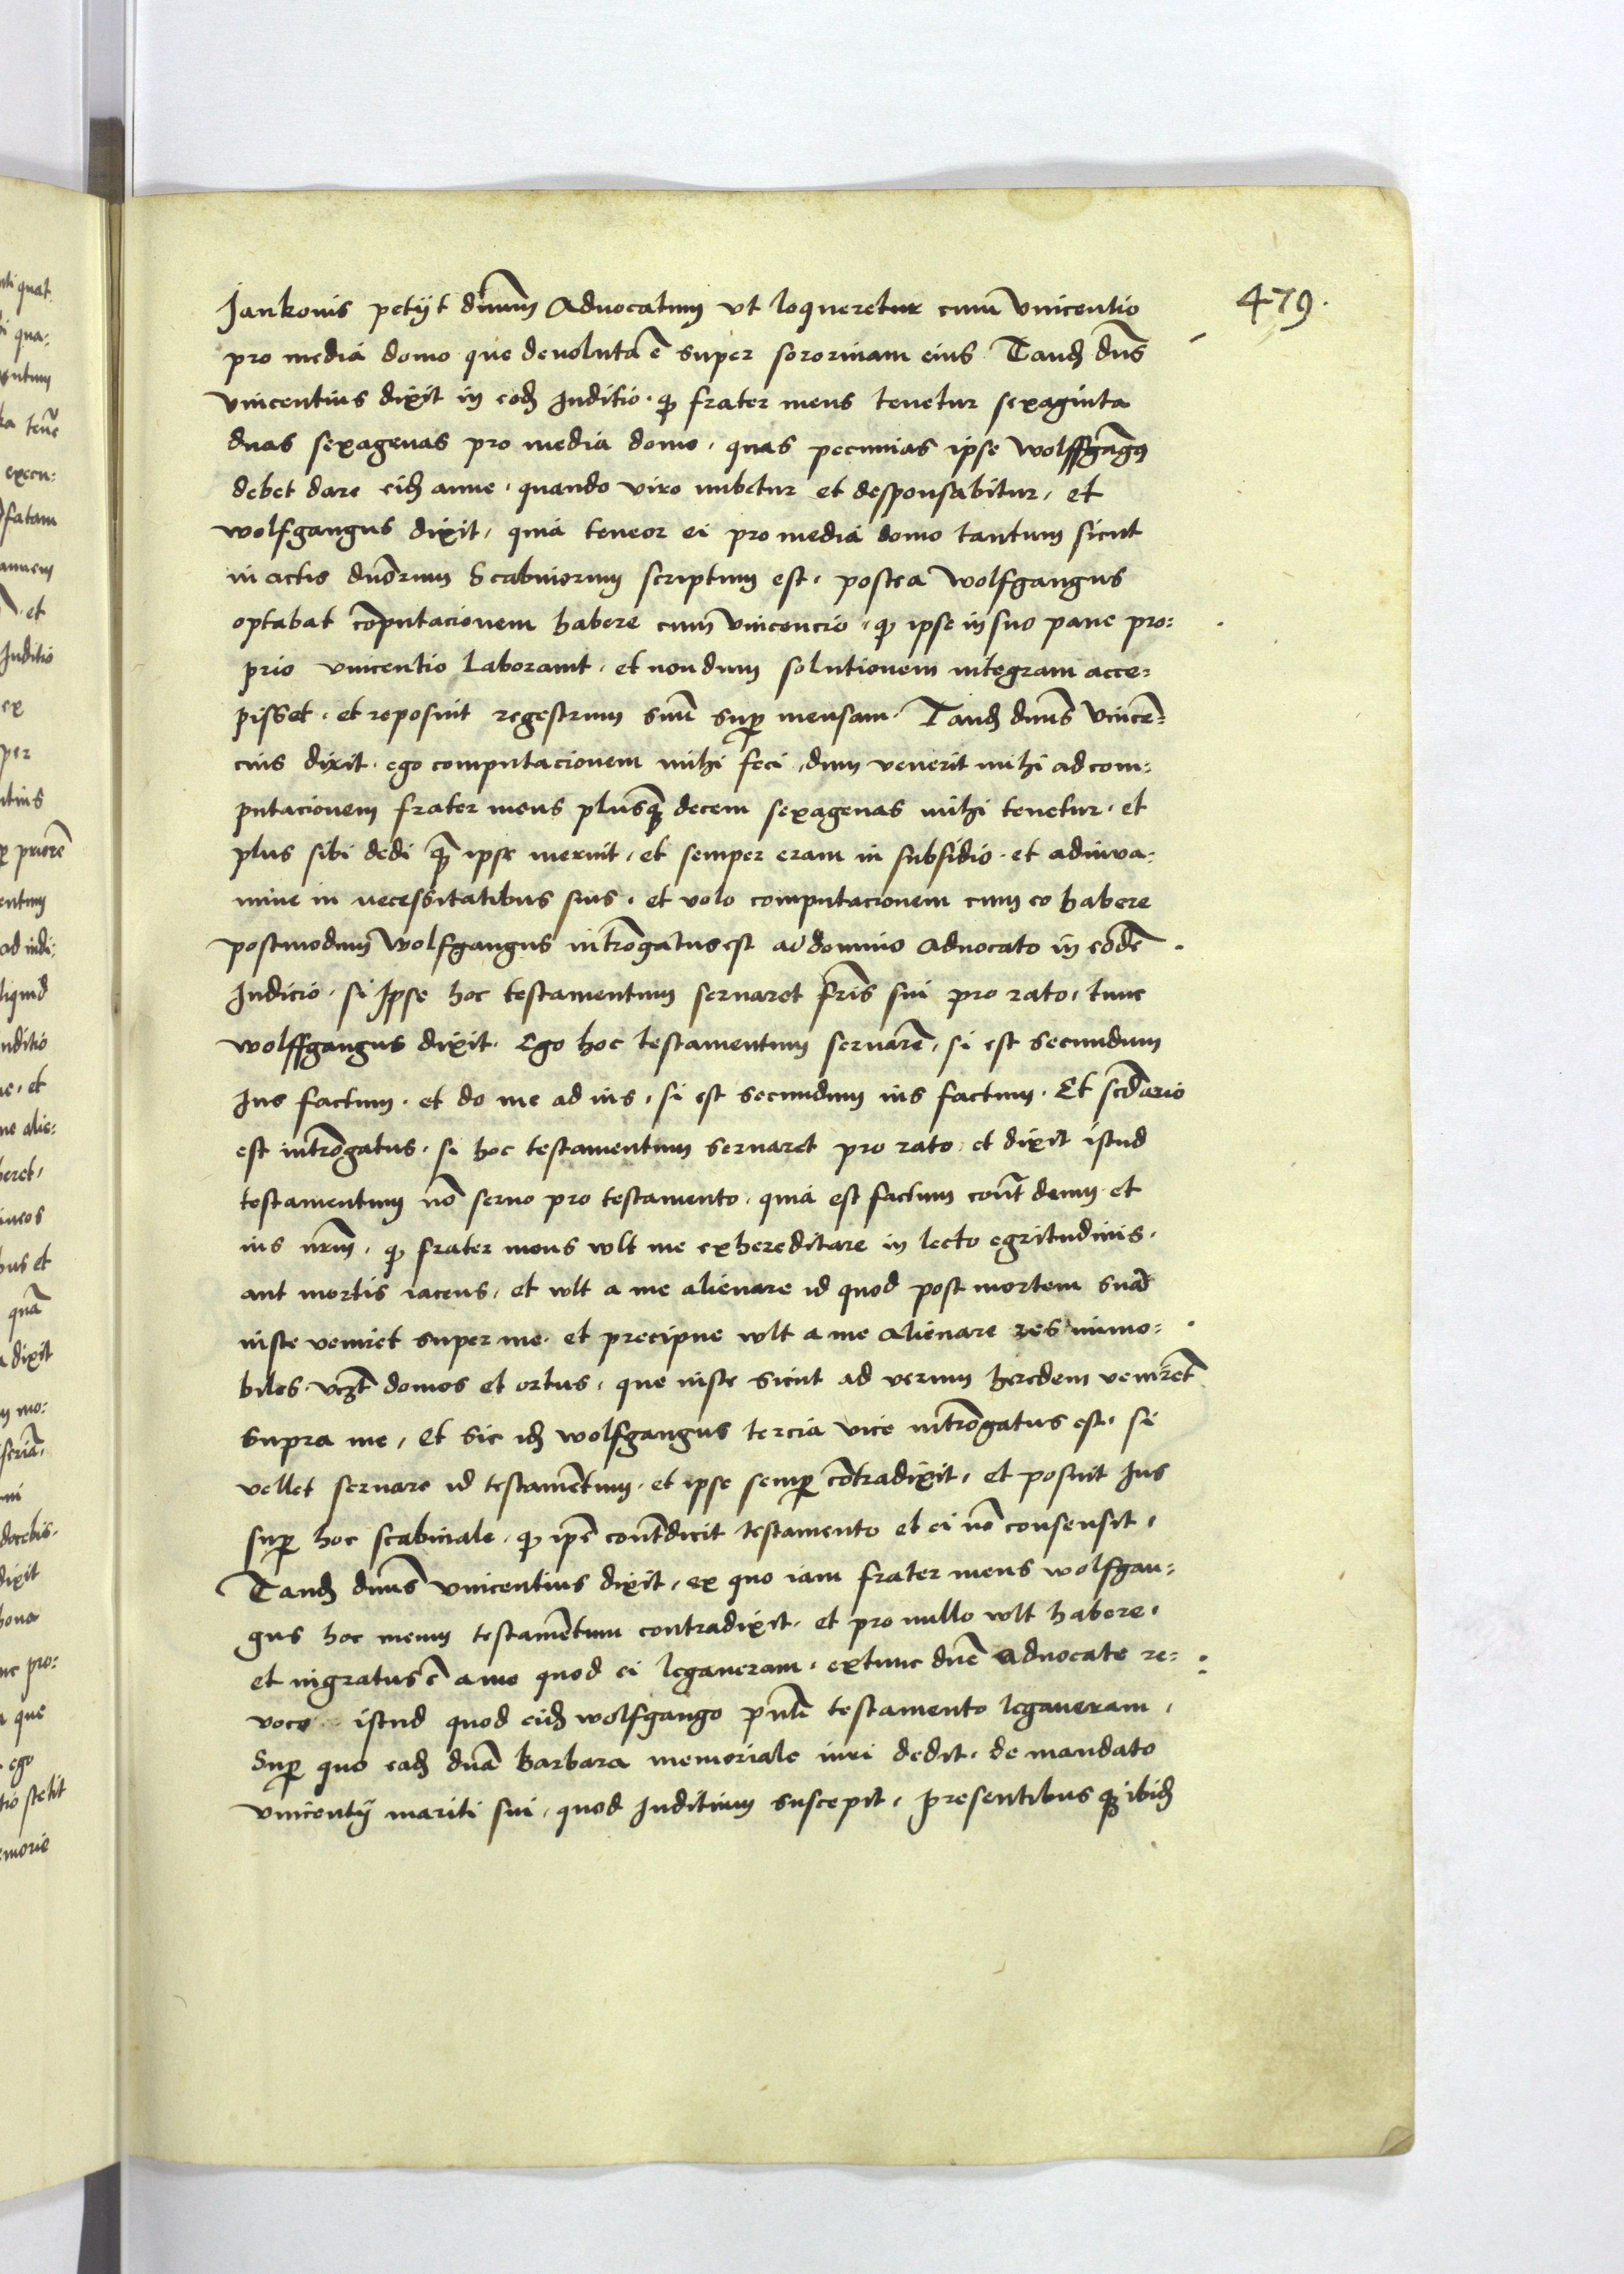 479.
Jankonis petyt dnūm Advocatum vt loqueretur cum Vincentio
pro media domo que devoluta ē super sororinam eius. Tandꝫ dnūs
Vincentius dixit in eodꝫ Juditio. qꝫ frater meus tenetur sexaginta
duas sexagenas pro media domo, quas pecunias ipse Wolffgang9
debet dare eidꝫ anne. quando viro nubetur et desponsabitur, et
wolfgangus dixit, quia teneor ei pro media domo tantum sicut
in actis dnōrum Scabinorum scriptum est. postea Wolfgangus
optabat cōputacionem habere cum Vincencio, qꝫ ipse in suo pane pro:
prio vincentio laboravit, et nondum solutionem integram acce:
pisset. et reposuit regestrum suū sup̄ mensam. Tandꝫ dnūs Vincē:
cius dixit. ego computacionem mihi feci, dum venerit mihi ad com:
putacionem frater meus plusqꝫ decem sexagenas mihi tenetur, et
plus sibi dedi qꝫ ipse meruit, et semper eram in subsidio. et adiuva:
mine in necessitatibus suis. et volo computacionem cum eo habere
postmodum Wolfgangus intrōgatus est ad domino advocato in eodē
Judicio. si Jpse hoc testamentum servaret frīs sui pro rato, tunc
wolffgangus dixit. Ego hoc testamentum servarē, si est secundum
Jus factum. et do me ad ius, si est secundum ius factum. Et scd̄ario
est intrōgatus. si hoc testamentum servaret pro rato. et dixit istud
testamentum nō servo pro testamento. quia est factum cont̄ deum. et
ius nr̄m, qꝫ frater meus wlt me exhereditare in lecto egritudinis.
aut mortis iacens, et wlt a me alienare id quod post mortem suā
iuste veniret super me. et precipue wlt a me alienare res immo:
biles. vꝫt domos et ortus, que iuste sicut ad verum heredem venirēt
supra me, Et sic idꝫ wolfgangus tercia vice intrōgatus est, si
vellet servare id testamētum. et ipse semp̄ cōtradixit, et posuit Jus
sup̄ hoc scabinale. qꝫ ipē cont̄dicit testamento et ei nō consensit,
Tandꝫ dnūs vincentius dixit, ex quo iam frater meus wolfgan:
gus hoc meum testamētum contradixit. et pro nullo wlt habere.
et ingratus ē a me quod ei legaveram. extunc dnē advocate re:
voco istud quod eidꝫ wolfgango pn̄ti testamento legaveram,
Sup̄ quo eadꝫ dnā Barbara memoriale iuri dedit. de mandato
vincentÿ mariti sui, quod Juditium suscepit, presentibus qꝫ ibidꝫ